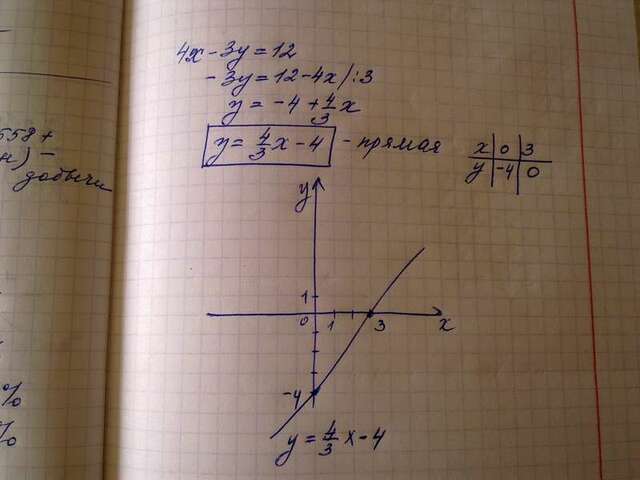 558+
–
добычи
%
%
4x - 3y = 12
- 3y = 12 - 4x /:3
y = -4 + 4/3 x
y = 4/3 x - 4 - прямая
x 0 3
y -4 0
y
1
0 1 3 x
-4
y = 4/3 x - 4